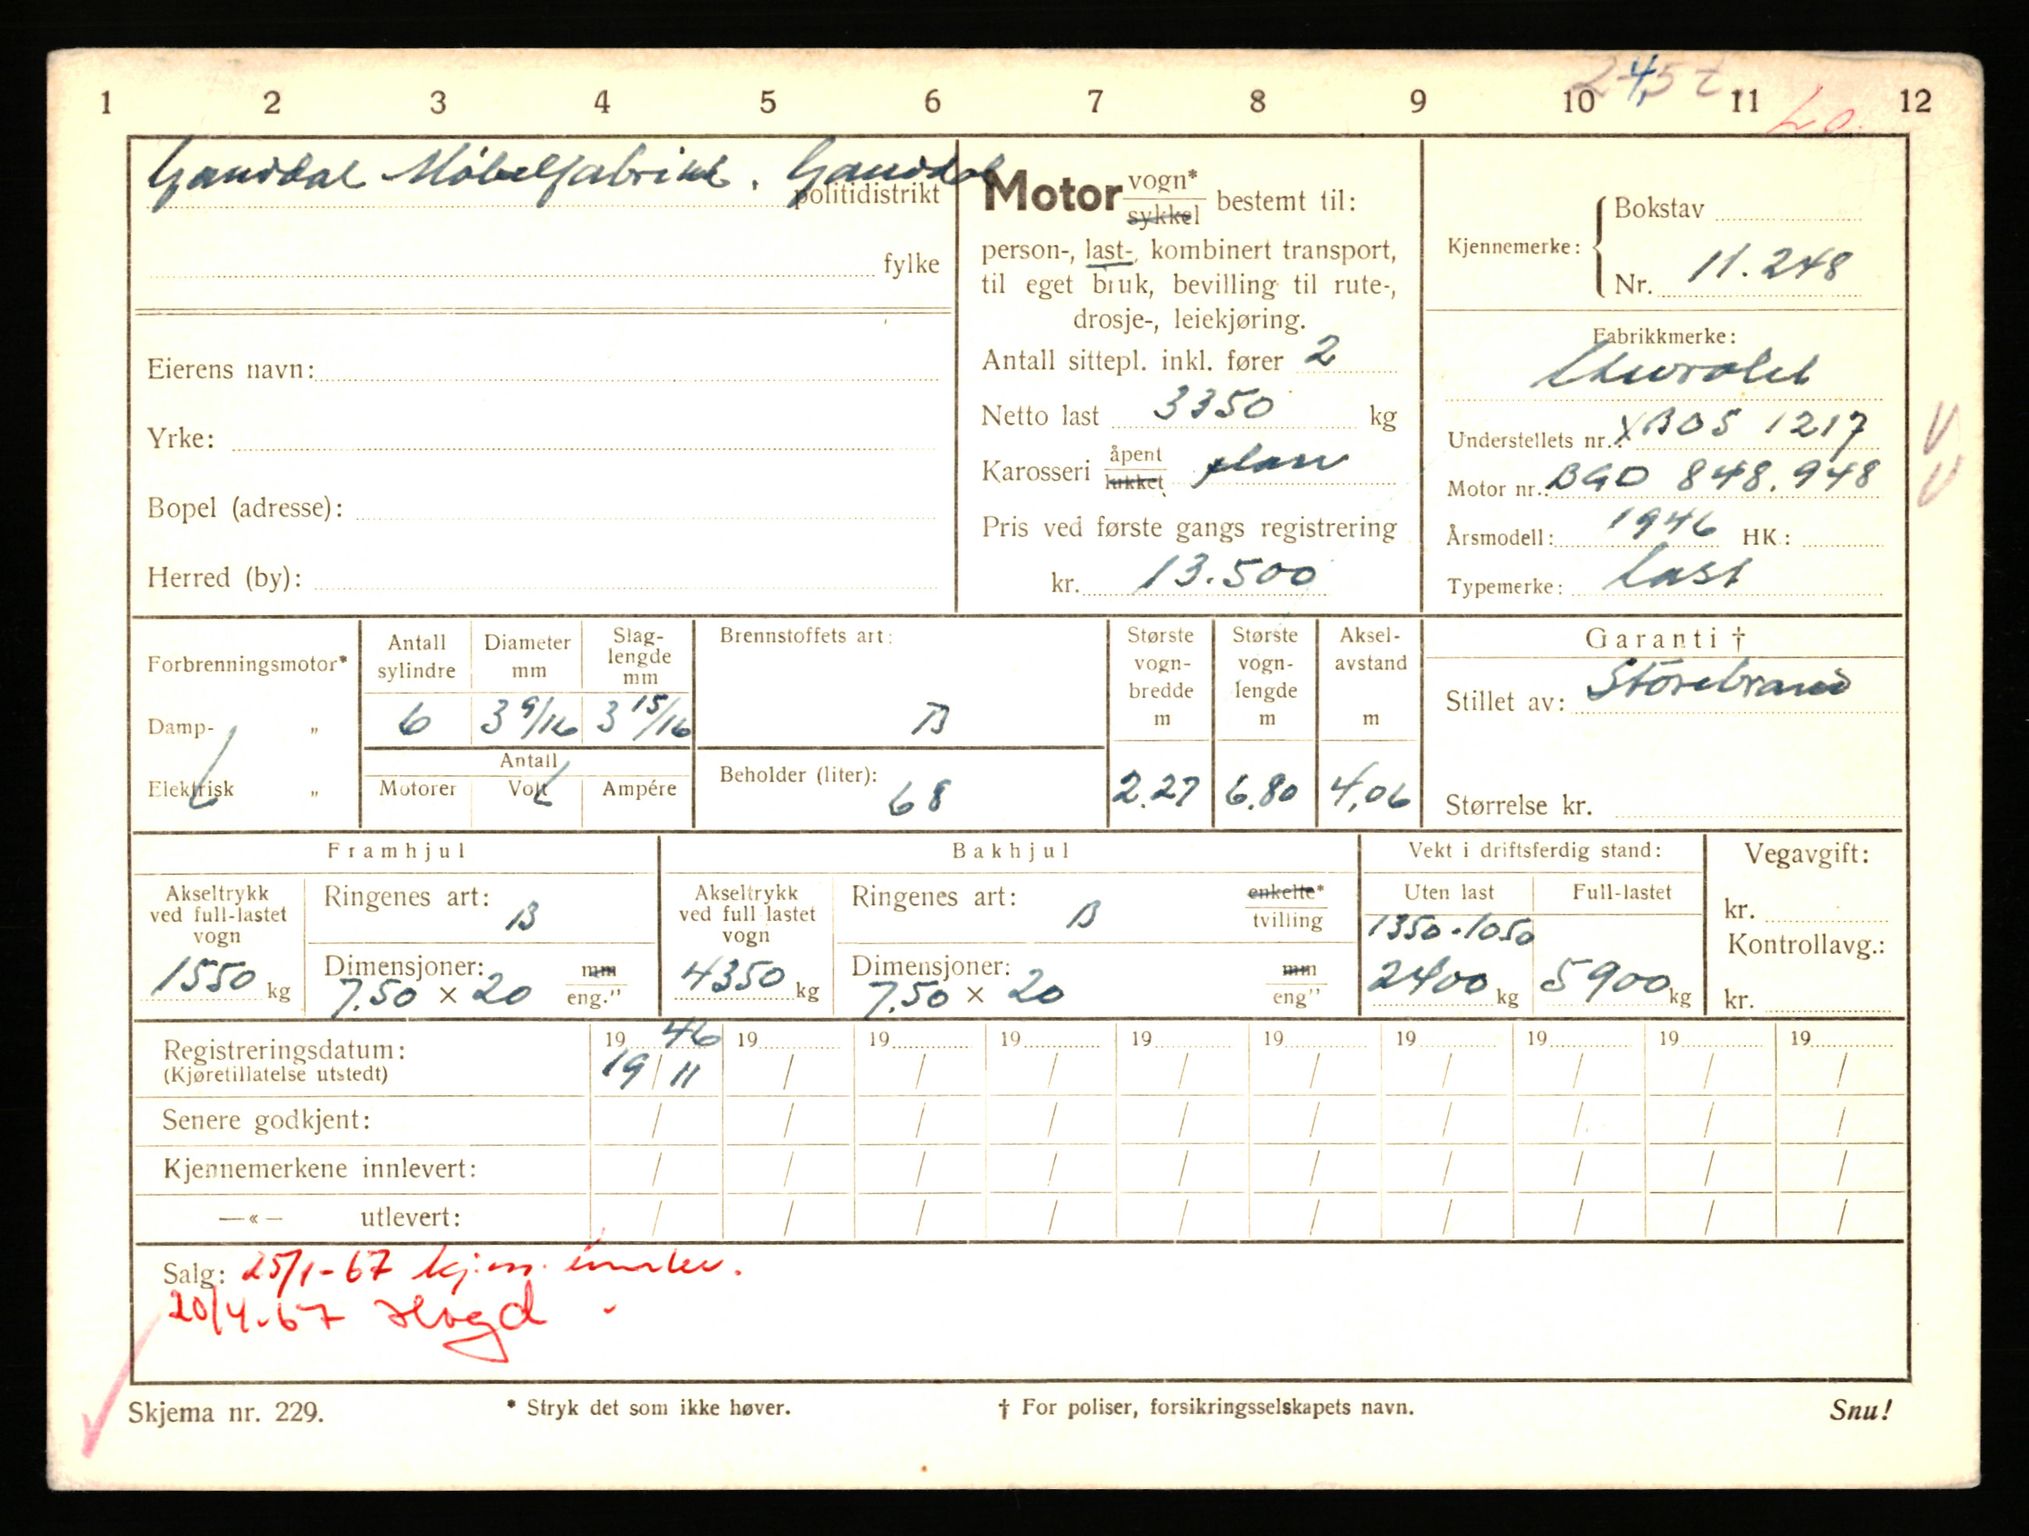 1 2 3 4 5 6 7 8 9 10 11 12
Gansdal Møbelfabrikk. Gansdal
politidistrikt
fylke
Eierens navn:
Yrke:
Bopel (adresse):
Herred (by):
Motor vogn* sykkel bestemt til:
person-, last-, kombinert transport,
til eget bruk, bevilling til rute-,
drosje-, leiekjøring.
Antall sittepl. inkl. fører 2
Netto last 3350 kg
Karosseri åpent lukket plan
Pris ved første gangs registrering
kr. 13.500
Kjennemerke: Bokstav
Nr. 11.248
Fabrikkmerke:
Chevrolet
Understellets nr.: XBOS 1217
Motor nr.: BGD 848.948
Årsmodell: 1946 HK.:
Typemerke: Last
Forbrenningsmotor*
Damp- „
Elektrisk „
Antall sylindre Diameter mm Slag-lengde mm
6 3 9/16 3 15/16
Antall
Motorer Volt Ampére
Brennstoffets art:
B
Beholder (liter):
68
Største vogn-bredde m
2.27
Største vogn-lengde m
6.80
Aksel-avstand m
4,06
Garanti †
Stillet av: Storebrand
Størrelse kr.
Framhjul
Akseltrykk ved full-lastet vogn
1550 kg
Ringenes art: B
Dimensjoner: mm
7.50 × 20 eng."
Bakhjul
Akseltrykk ved full lastet vogn
4350 kg
Ringenes art: B enkelte* tvilling
Dimensjoner: mm
7.50 × 20 eng"
Vekt i driftsferdig stand:
Uten last Full-lastet
1350-1050
2400 kg 5900 kg
Vegavgift:
kr.
Kontrollavg.:
kr.
Registreringsdatum: 19 46 19 19 19 19 19 19 19 19 19
(Kjøretillatelse utstedt) 19/11 / / / / / / / / /
Senere godkjent: / / / / / / / / / /
Kjennemerkene innlevert: / / / / / / / / / /
—«— utlevert: / / / / / / / / / /
Salg: 25/1-67 kj.m. innlev.
20/4-67
Skjema nr. 229. * Stryk det som ikke høver. † For poliser, forsikringsselskapets navn. Snu!